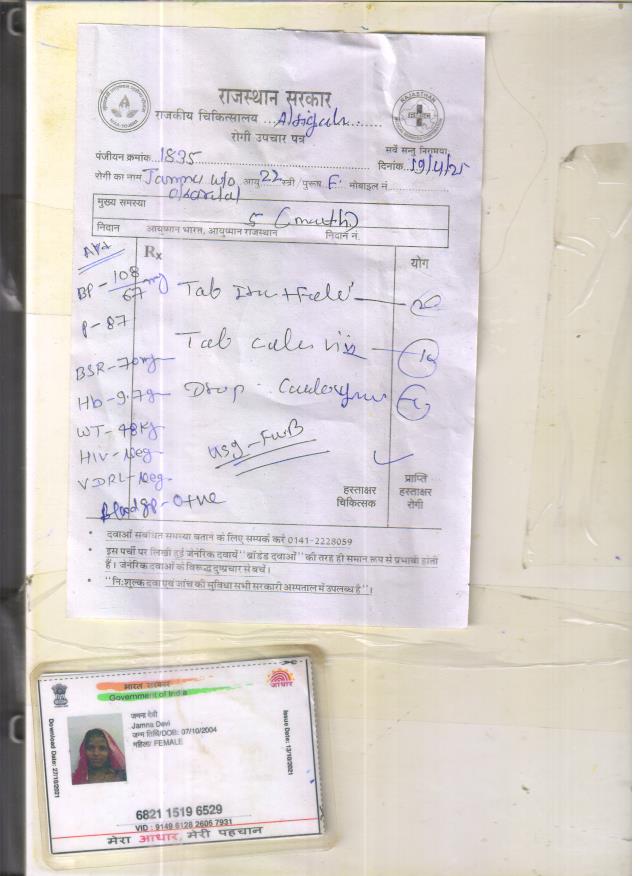 राजस्थान सरकार
राजकीय चिकित्सालय
रोगी उपचार पत्र
सर्वे सन्तु निरामया
पंजीयन क्रमांक 1835
दिनांक 19/4/25
रोगी का नाम Jamna w/o आयु 22 स्त्री / पुरूष F मोबाइल नं.
मुख्य समस्या
5 (month)
निदान आयुष्मान भारत, आयुष्मान राजस्थान निदान नं.
Rx
योग
BP - 108/67 mg
Tab
P - 87
Tab
BSR - 70 mg
Hb - 9.7 g
Drop
WT - 48 Kg
USG - FWB
HIV - Neg
VDRL - Neg
Blood gp - O+ve
हस्ताक्षर
चिकित्सक
प्राप्ति
हस्ताक्षर
रोगी
• दवाओं संबंधित समस्या बताने के लिए सम्पर्क करें 0141-2228059
• इस पर्ची पर लिखी हुई जेनेरिक दवायें "ब्रांडेड दवाओं" की तरह ही समान रूप से प्रभावी होती
हैं। जेनेरिक दवाओं के विरूद्ध दुष्प्रचार से बचें।
• "निःशुल्क दवा एवं जांच की सुविधा सभी सरकारी अस्पताल में उपलब्ध है"।
भारत सरकार
Government of India
आधार
जमना देवी
Jamna Devi
जन्म तिथि/DOB: 07/10/2004
महिला/ FEMALE
Download Date: 27/10/2021
Issue Date: 13/10/2021
6821 1519 6529
VID : 9149 6128 2606 7931
मेरा आधार, मेरी पहचान